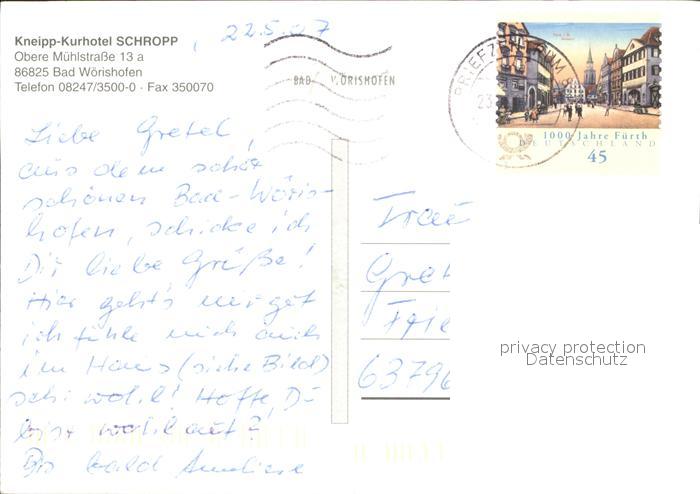 Kneipp-Kurhotel SCHROPP
Obere Mühlstraße 13 a
86825 Bad Wörishofen
Telefon 08247/3500-0 · Fax 350070
, 22.5.07
BAD WÖRISHOFEN
BRIEFZENTRUM
23
1000 Jahre Fürth
DEUTSCHLAND
45
Liebe Gretel,
aus dem sehr
schönen Bad-Wöris-
hofen, schicke ich
Dir liebe Grüße!
Hier geht's mir gut
ich fühle mich auch
im Haus (siehe Bild)
sehr wohl! Hoffe, Du
bist wohlauf?
Bis bald Anneliese
Frau
Gret
63796
privacy protection
Datenschutz